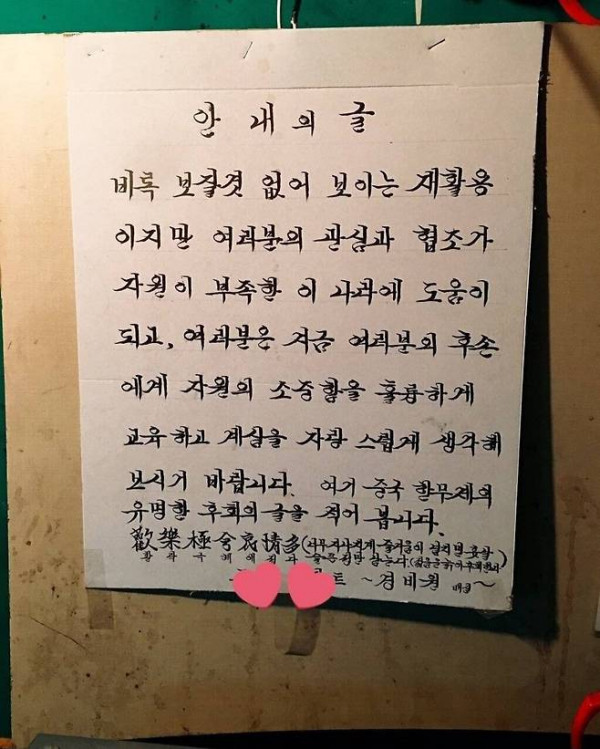 안내의 글
비록 보잘것 없어 보이는 재활용
이지만 여러분의 관심과 협조가
자원이 부족한 이 사과에 도움이
되고, 여러분은 지금 여러분의 후손
에게 자원의 소중함을 훌륭하게
교육하고 계심을 자랑 스럽게 생각해
보시기 바랍니다. 여기 중국 한무제의
유명한 후회의 글을 적어 봅니다.
歡樂極兮哀情多(너무 지나치게 즐거움이 넘치면 항상
환락극혜애정다 슬픈 정만 남는다.
~경비원 ~